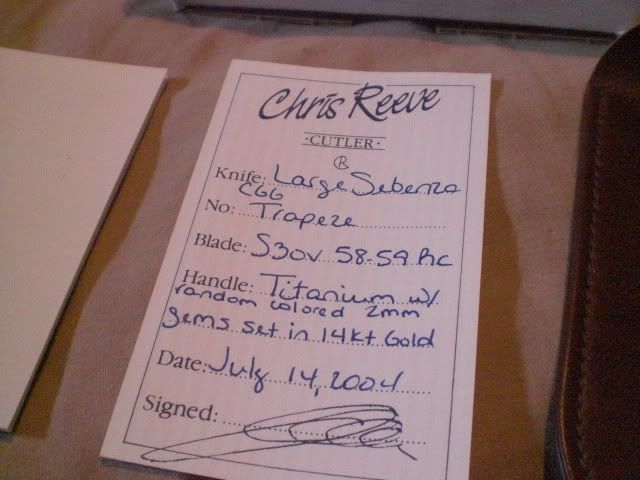 Chris Reeve
·CUTLER·
R
Knife: Large Sebenza
CGG
No: Trapeze
Blade: S30V 58-59 RC
Handle: Titanium w/
random colored 2mm
gems set in 14kt Gold
Date: July 14, 2004
Signed: